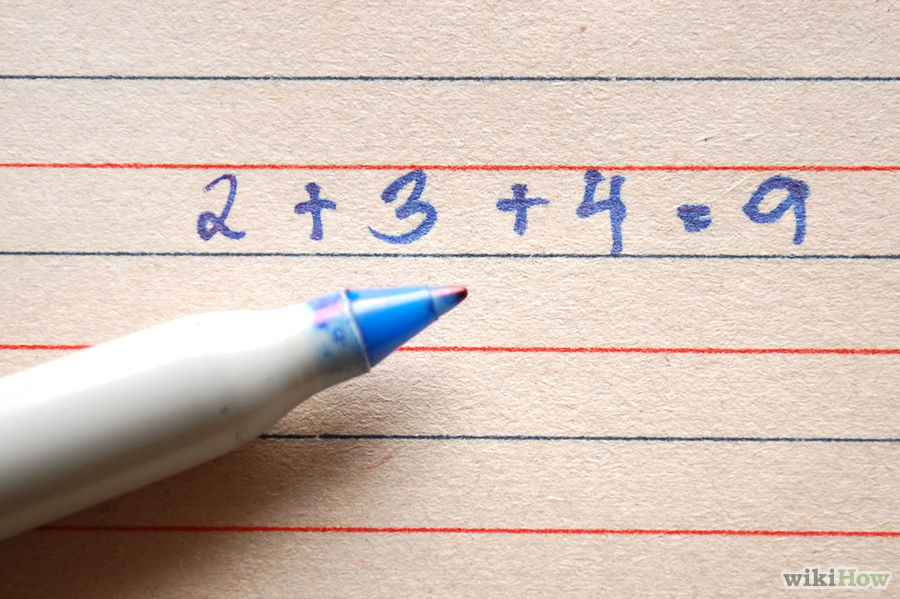 2 + 3 + 4 = 9
wikiHow